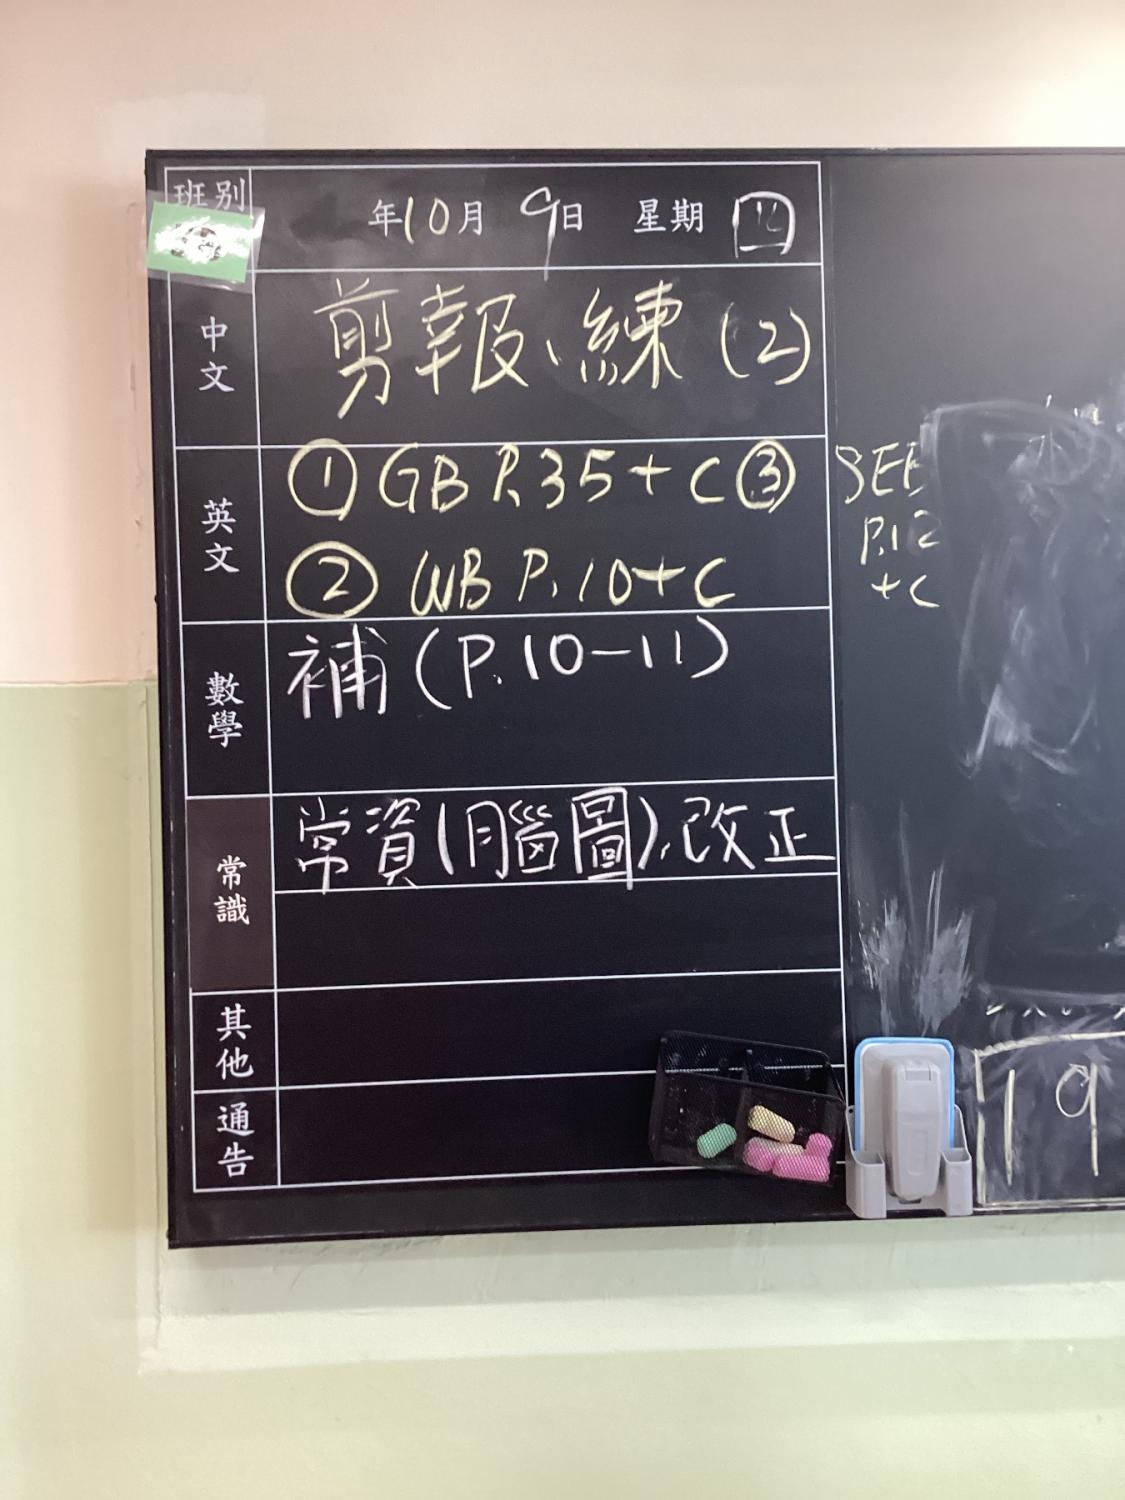 班別
年10月 9日 星期 四
中文
剪報、練(2)
英文
① GB P.35+C ③
SEE
P.12
+C
② WB P.10+C
數學
補(P.10-11)
常識
常資(腦圖)、改正
其他
通告
19